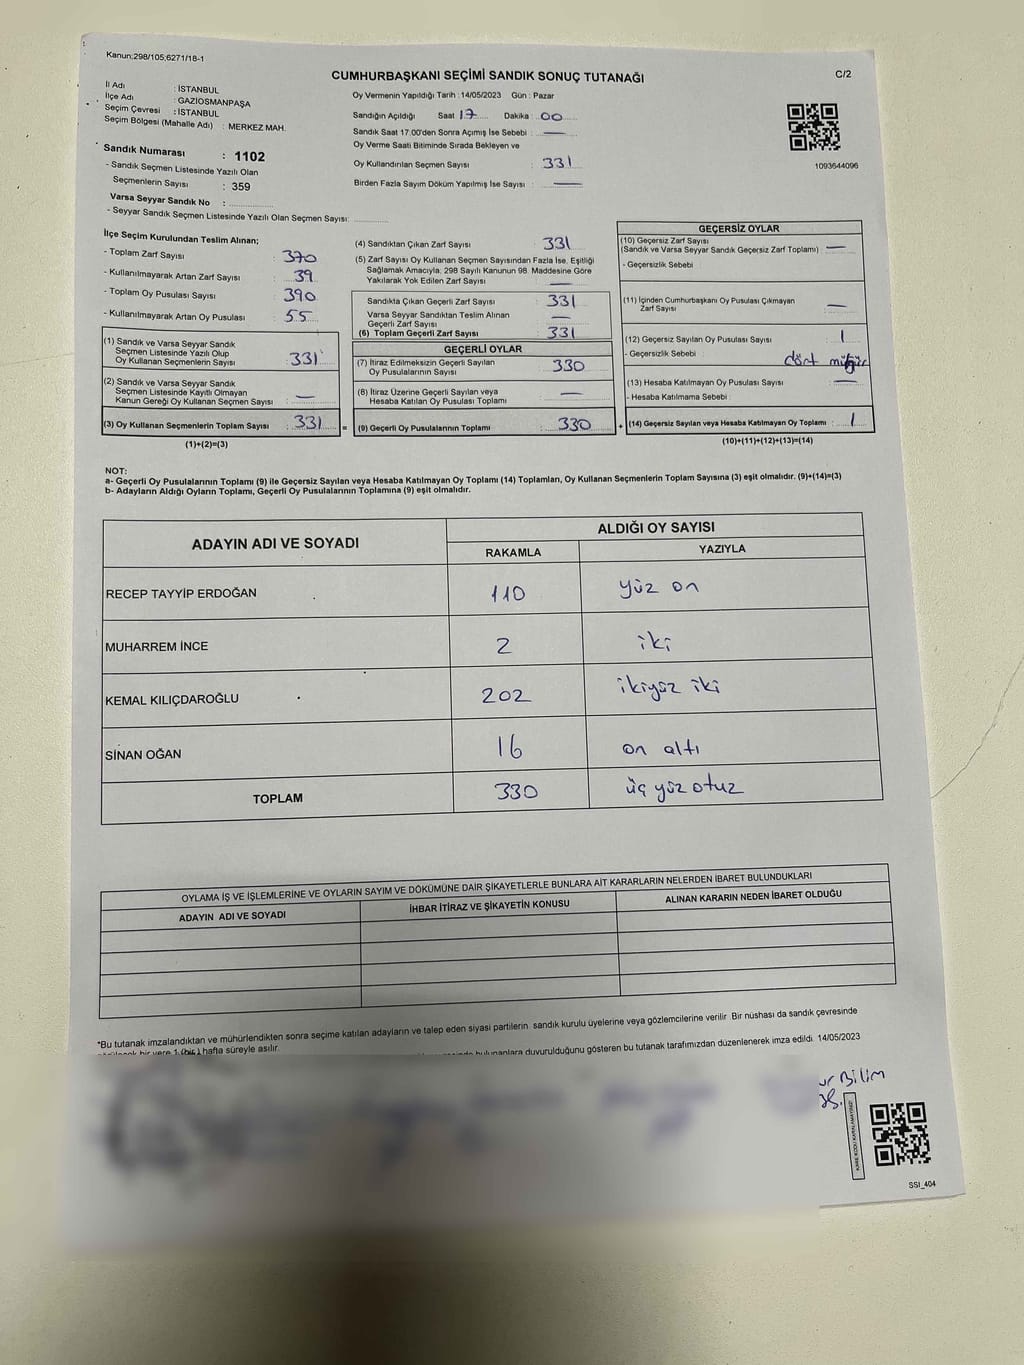 Kanun;298/105;6271/18-1
CUMHURBAŞKANI SEÇİMİ SANDIK SONUÇ TUTANAĞI
C/2
İl Adı : İSTANBUL
İlçe Adı : GAZİOSMANPAŞA
Seçim Çevresi : İSTANBUL
Seçim Bölgesi (Mahalle Adı) : MERKEZ MAH.
Oy Vermenin Yapıldığı Tarih : 14/05/2023 Gün : Pazar
Sandığın Açıldığı Saat 17 Dakika 00
Sandık Saat 17.00'den Sonra Açımış İse Sebebi : —
Oy Verme Saati Bitiminde Sırada Bekleyen ve
Oy Kullandırılan Seçmen Sayısı : 331
Birden Fazla Sayım Döküm Yapılmış İse Sayısı : —
1093644096
Sandık Numarası : 1102
- Sandık Seçmen Listesinde Yazılı Olan
Seçmenlerin Sayısı : 359
Varsa Seyyar Sandık No :
- Seyyar Sandık Seçmen Listesinde Yazılı Olan Seçmen Sayısı:
İlçe Seçim Kurulundan Teslim Alınan;
- Toplam Zarf Sayısı : 370
- Kullanılmayarak Artan Zarf Sayısı : 39
- Toplam Oy Pusulası Sayısı : 390
- Kullanılmayarak Artan Oy Pusulası : 55
(1) Sandık ve Varsa Seyyar Sandık
Seçmen Listesinde Yazılı Olup
Oy Kullanan Seçmenlerin Sayısı : 331
(2) Sandık ve Varsa Seyyar Sandık
Seçmen Listesinde Kayıtlı Olmayan
Kanun Gereği Oy Kullanan Seçmen Sayısı : —
(3) Oy Kullanan Seçmenlerin Toplam Sayısı : 331 =
(1)+(2)=(3)
(4) Sandıktan Çıkan Zarf Sayısı : 331
(5) Zarf Sayısı Oy Kullanan Seçmen Sayısından Fazla İse, Eşitliği
Sağlamak Amacıyla, 298 Sayılı Kanunun 98. Maddesine Göre
Yakılarak Yok Edilen Zarf Sayısı : —
Sandıkta Çıkan Geçerli Zarf Sayısı : 331
Varsa Seyyar Sandıktan Teslim Alınan
Geçerli Zarf Sayısı : —
(6) Toplam Geçerli Zarf Sayısı : 331
GEÇERLİ OYLAR
(7) İtiraz Edilmeksizin Geçerli Sayılan
Oy Pusulalarının Sayısı : 330
(8) İtiraz Üzerine Geçerli Sayılan veya
Hesaba Katılan Oy Pusulası Toplamı : —
(9) Geçerli Oy Pusulalarının Toplamı : 330 +
GEÇERSİZ OYLAR
(10) Geçersiz Zarf Sayısı
(Sandık ve Varsa Seyyar Sandık Geçersiz Zarf Toplamı) : —
- Geçersizlik Sebebi :
(11) İçinden Cumhurbaşkanı Oy Pusulası Çıkmayan
Zarf Sayısı : —
(12) Geçersiz Sayılan Oy Pusulası Sayısı : 1
- Geçersizlik Sebebi : dört mühür
(13) Hesaba Katılmayan Oy Pusulası Sayısı : —
- Hesaba Katılmama Sebebi :
(14) Geçersiz Sayılan veya Hesaba Katılmayan Oy Toplamı : 1
(10)+(11)+(12)+(13)=(14)
NOT:
a- Geçerli Oy Pusulalarının Toplamı (9) ile Geçersiz Sayılan veya Hesaba Katılmayan Oy Toplamı (14) Toplamları, Oy Kullanan Seçmenlerin Toplam Sayısına (3) eşit olmalıdır. (9)+(14)=(3)
b- Adayların Aldığı Oyların Toplamı, Geçerli Oy Pusulalarının Toplamına (9) eşit olmalıdır.
ADAYIN ADI VE SOYADI ALDIĞI OY SAYISI
RAKAMLA YAZIYLA
RECEP TAYYİP ERDOĞAN 110 yüz on
MUHARREM İNCE 2 iki
KEMAL KILIÇDAROĞLU 202 ikiyüz iki
SİNAN OĞAN 16 on altı
TOPLAM 330 üç yüz otuz
OYLAMA İŞ VE İŞLEMLERİNE VE OYLARIN SAYIM VE DÖKÜMÜNE DAİR ŞİKAYETLERLE BUNLARA AİT KARARLARIN NELERDEN İBARET BULUNDUKLARI
ADAYIN ADI VE SOYADI İHBAR İTİRAZ VE ŞİKAYETİN KONUSU ALINAN KARARIN NEDEN İBARET OLDUĞU
*Bu tutanak imzalandıktan ve mühürlendikten sonra seçime katılan adayların ve talep eden siyasi partilerin sandık kurulu üyelerine veya gözlemcilerine verilir. Bir nüshası da sandık çevresinde
görülecek bir yere 1 (bir) hafta süreyle asılır.
bulunanlara duyurulduğunu gösteren bu tutanak tarafımızdan düzenlenerek imza edildi. 14/05/2023
ur Bilim
KARE KODU KARALAMAYINIZ!
SSI_404